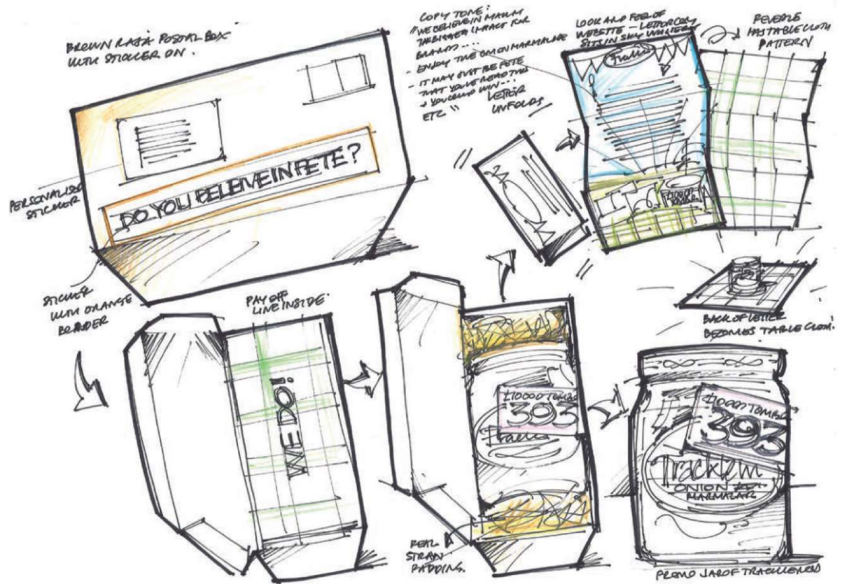 BROWN POSTAL BOX
WITH STICKER ON.
PERSONALISED
STICKER
DO YOU BELIEVE IN FETE?
STICKER
WITH ORANGE
BORDER
COPY TONE:
"WE BELIEVE IN MAKING
THE BIGGEST IMPACT FOR
BRANDS....
- ENJOY THE ONION MARMALADE
- IT MAY JUST BE FETE
THAT YOU'VE READ THIS
& YOU COULD WIN...
ETC"
LETTER
UNFOLDS
LOOK AND FEEL OF
WEBSITE - LETTER COPY
SITS IN SKY
REVERSE
HAS TABLE CLOTH
PATTERN
BACK OF LETTER
BECOMES TABLE CLOTH.
PAY OFF
LINE INSIDE.
WE DO!
£10000 TOMBOLA
303
REAL
STRAW
PADDING.
£10000 TOMBOLA
303
Tracklem
ONION
MARMALADE
PROMO JAR OF TRACKLEMENTS